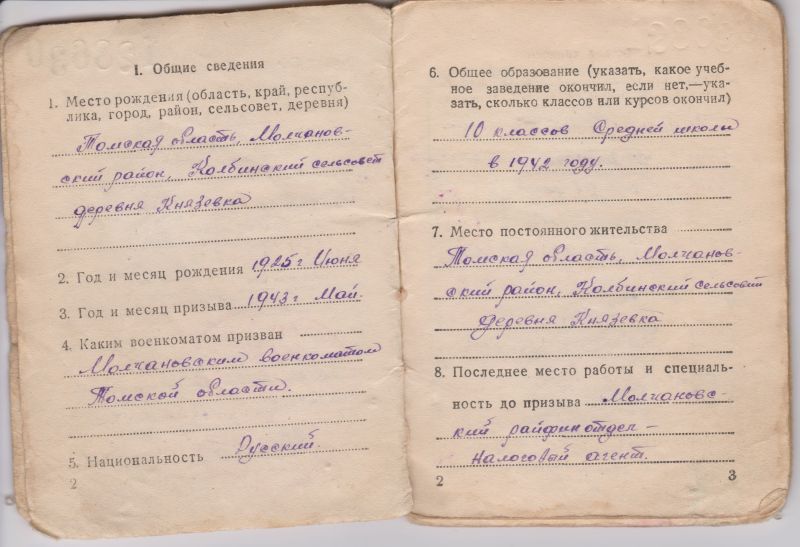 I. Общие сведения
1. Место рождения (область, край, респуб-
лика, город, район, сельсовет, деревня)
Томская область, Молчанов-
ский район, Колбинский сельсовет
деревня Князевка
2. Год и месяц рождения 1925 г Июня
3. Год и месяц призыва 1943 г Май.
4. Каким военкоматом призван
Молчановским военкоматом
Томской области.
5. Национальность Русский.
2
6. Общее образование (указать, какое учеб-
ное заведение окончил, если нет,—ука-
зать, сколько классов или курсов окончил)
10 классов Средней школы
в 1942 году.
7. Место постоянного жительства
Томская область, Молчанов-
ский район, Колбинский сельсовет
деревня Князевка
8. Последнее место работы и специаль-
ность до призыва Молчановс-
кий райфинотдел –
налоговый агент.
2 3